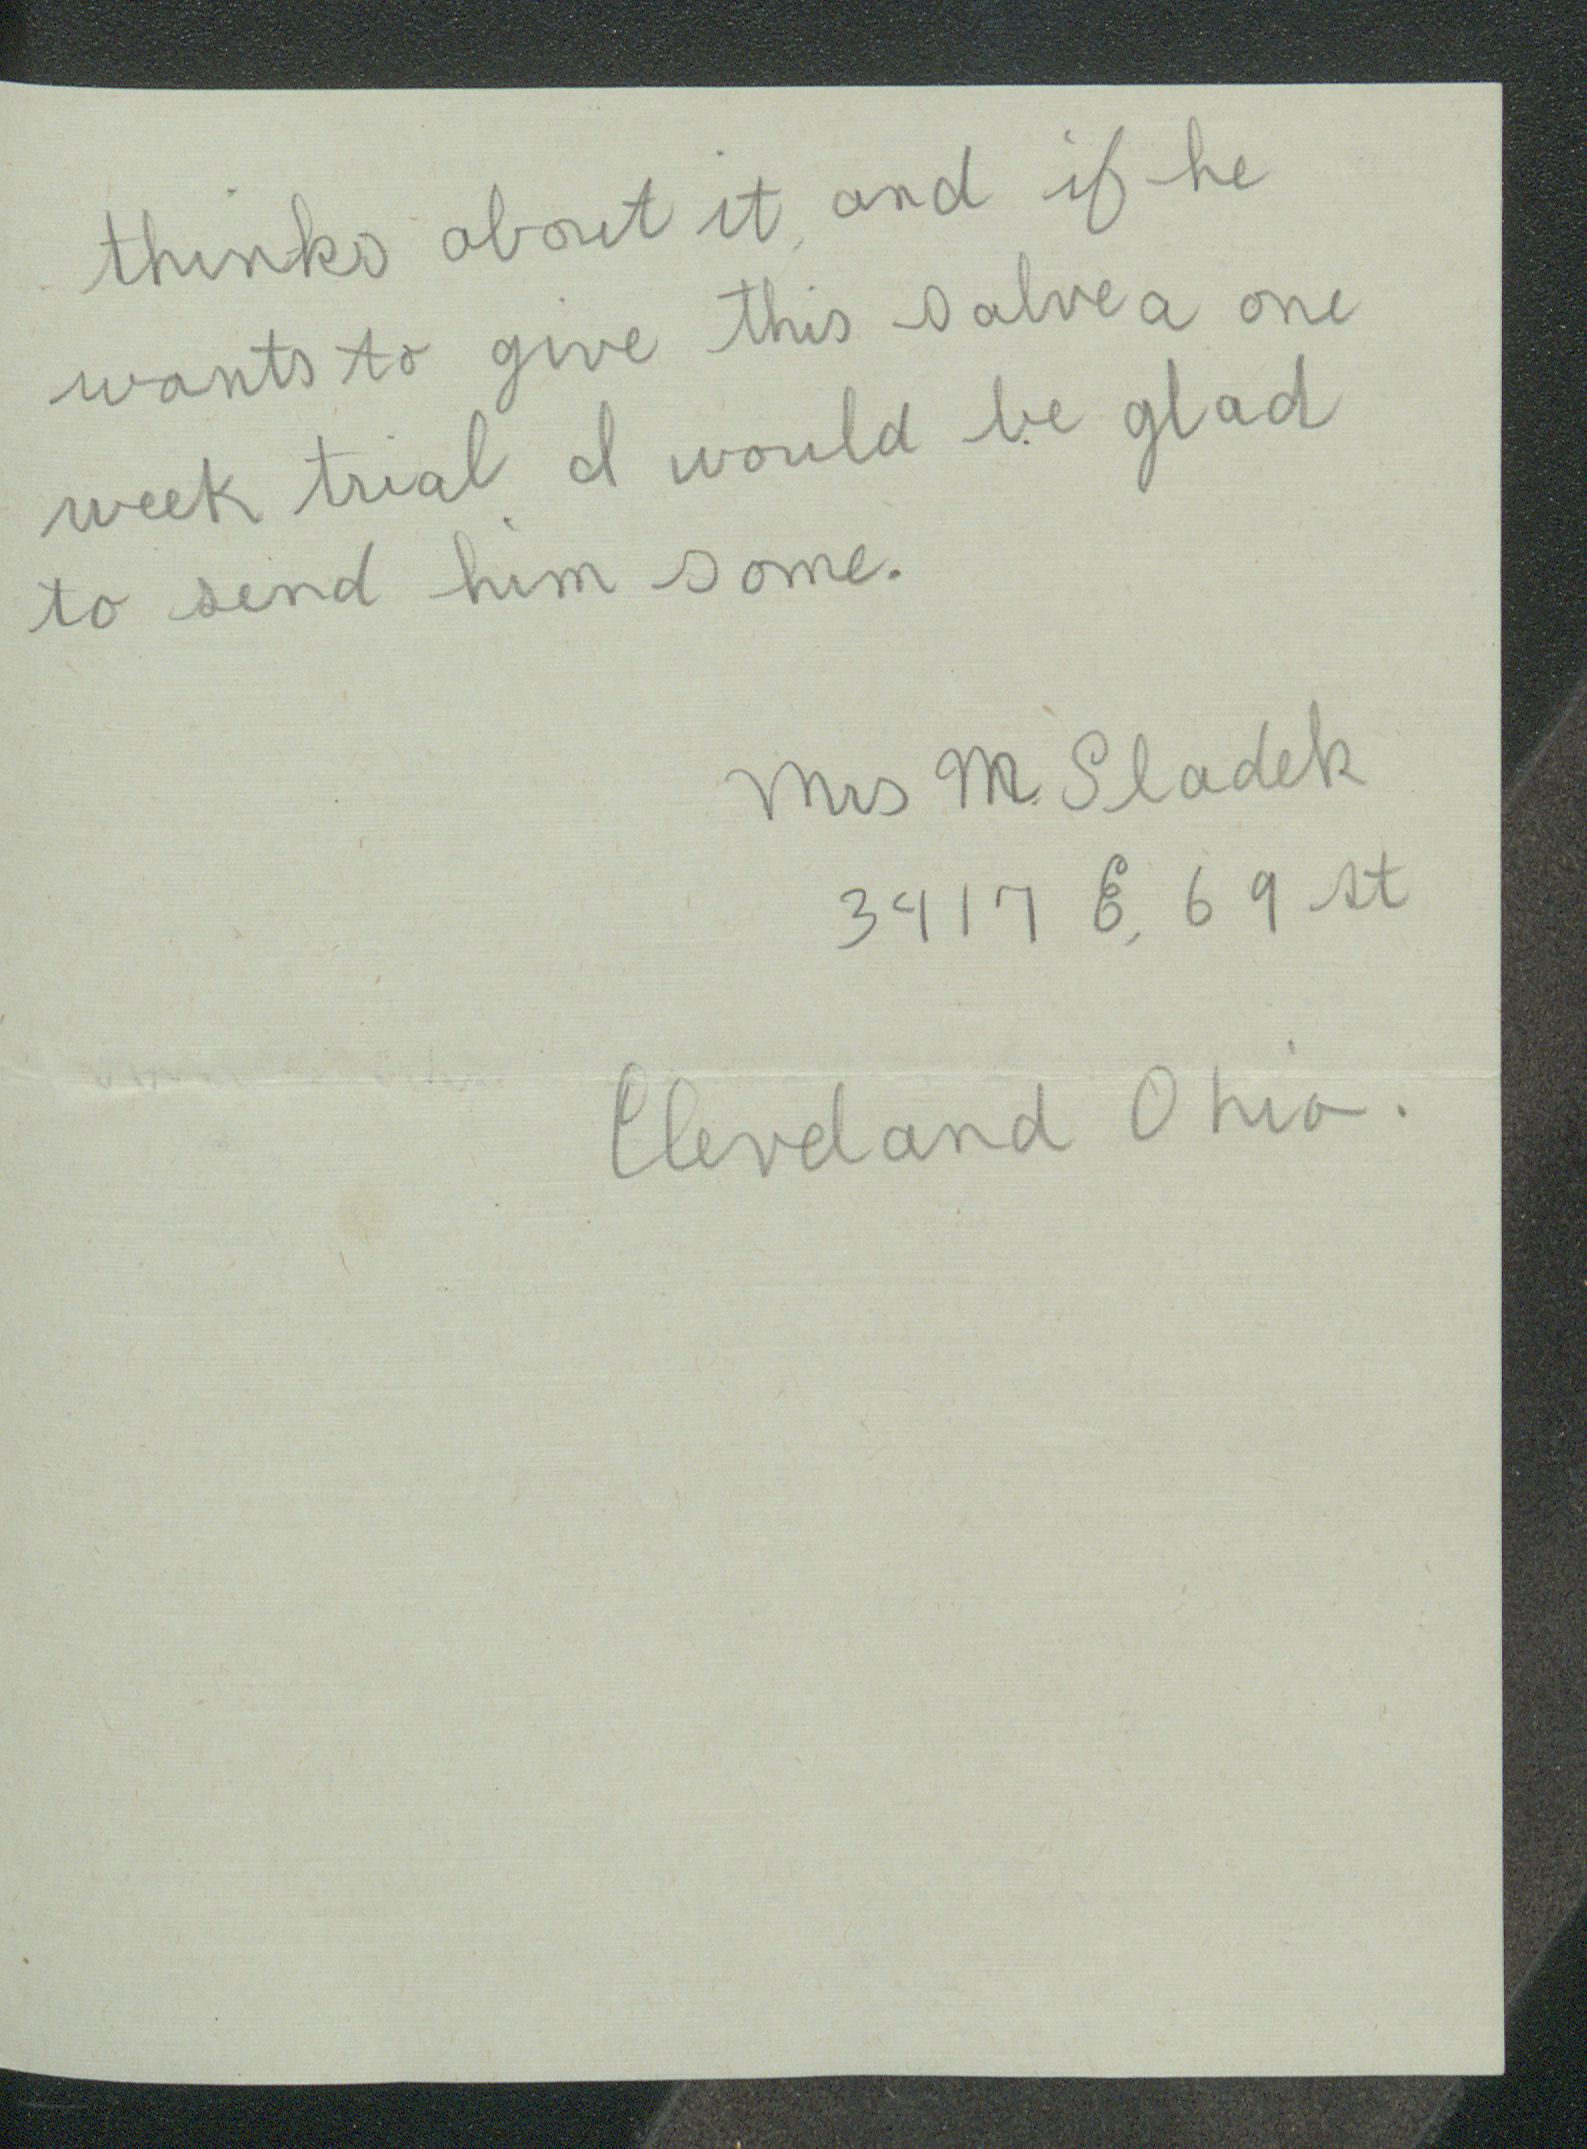 thinks about it, and if he
wants to give this salve a one
week trial I would be glad
to send him some.
Mrs M. Sladek
3417 E. 69 st
Cleveland Ohio.